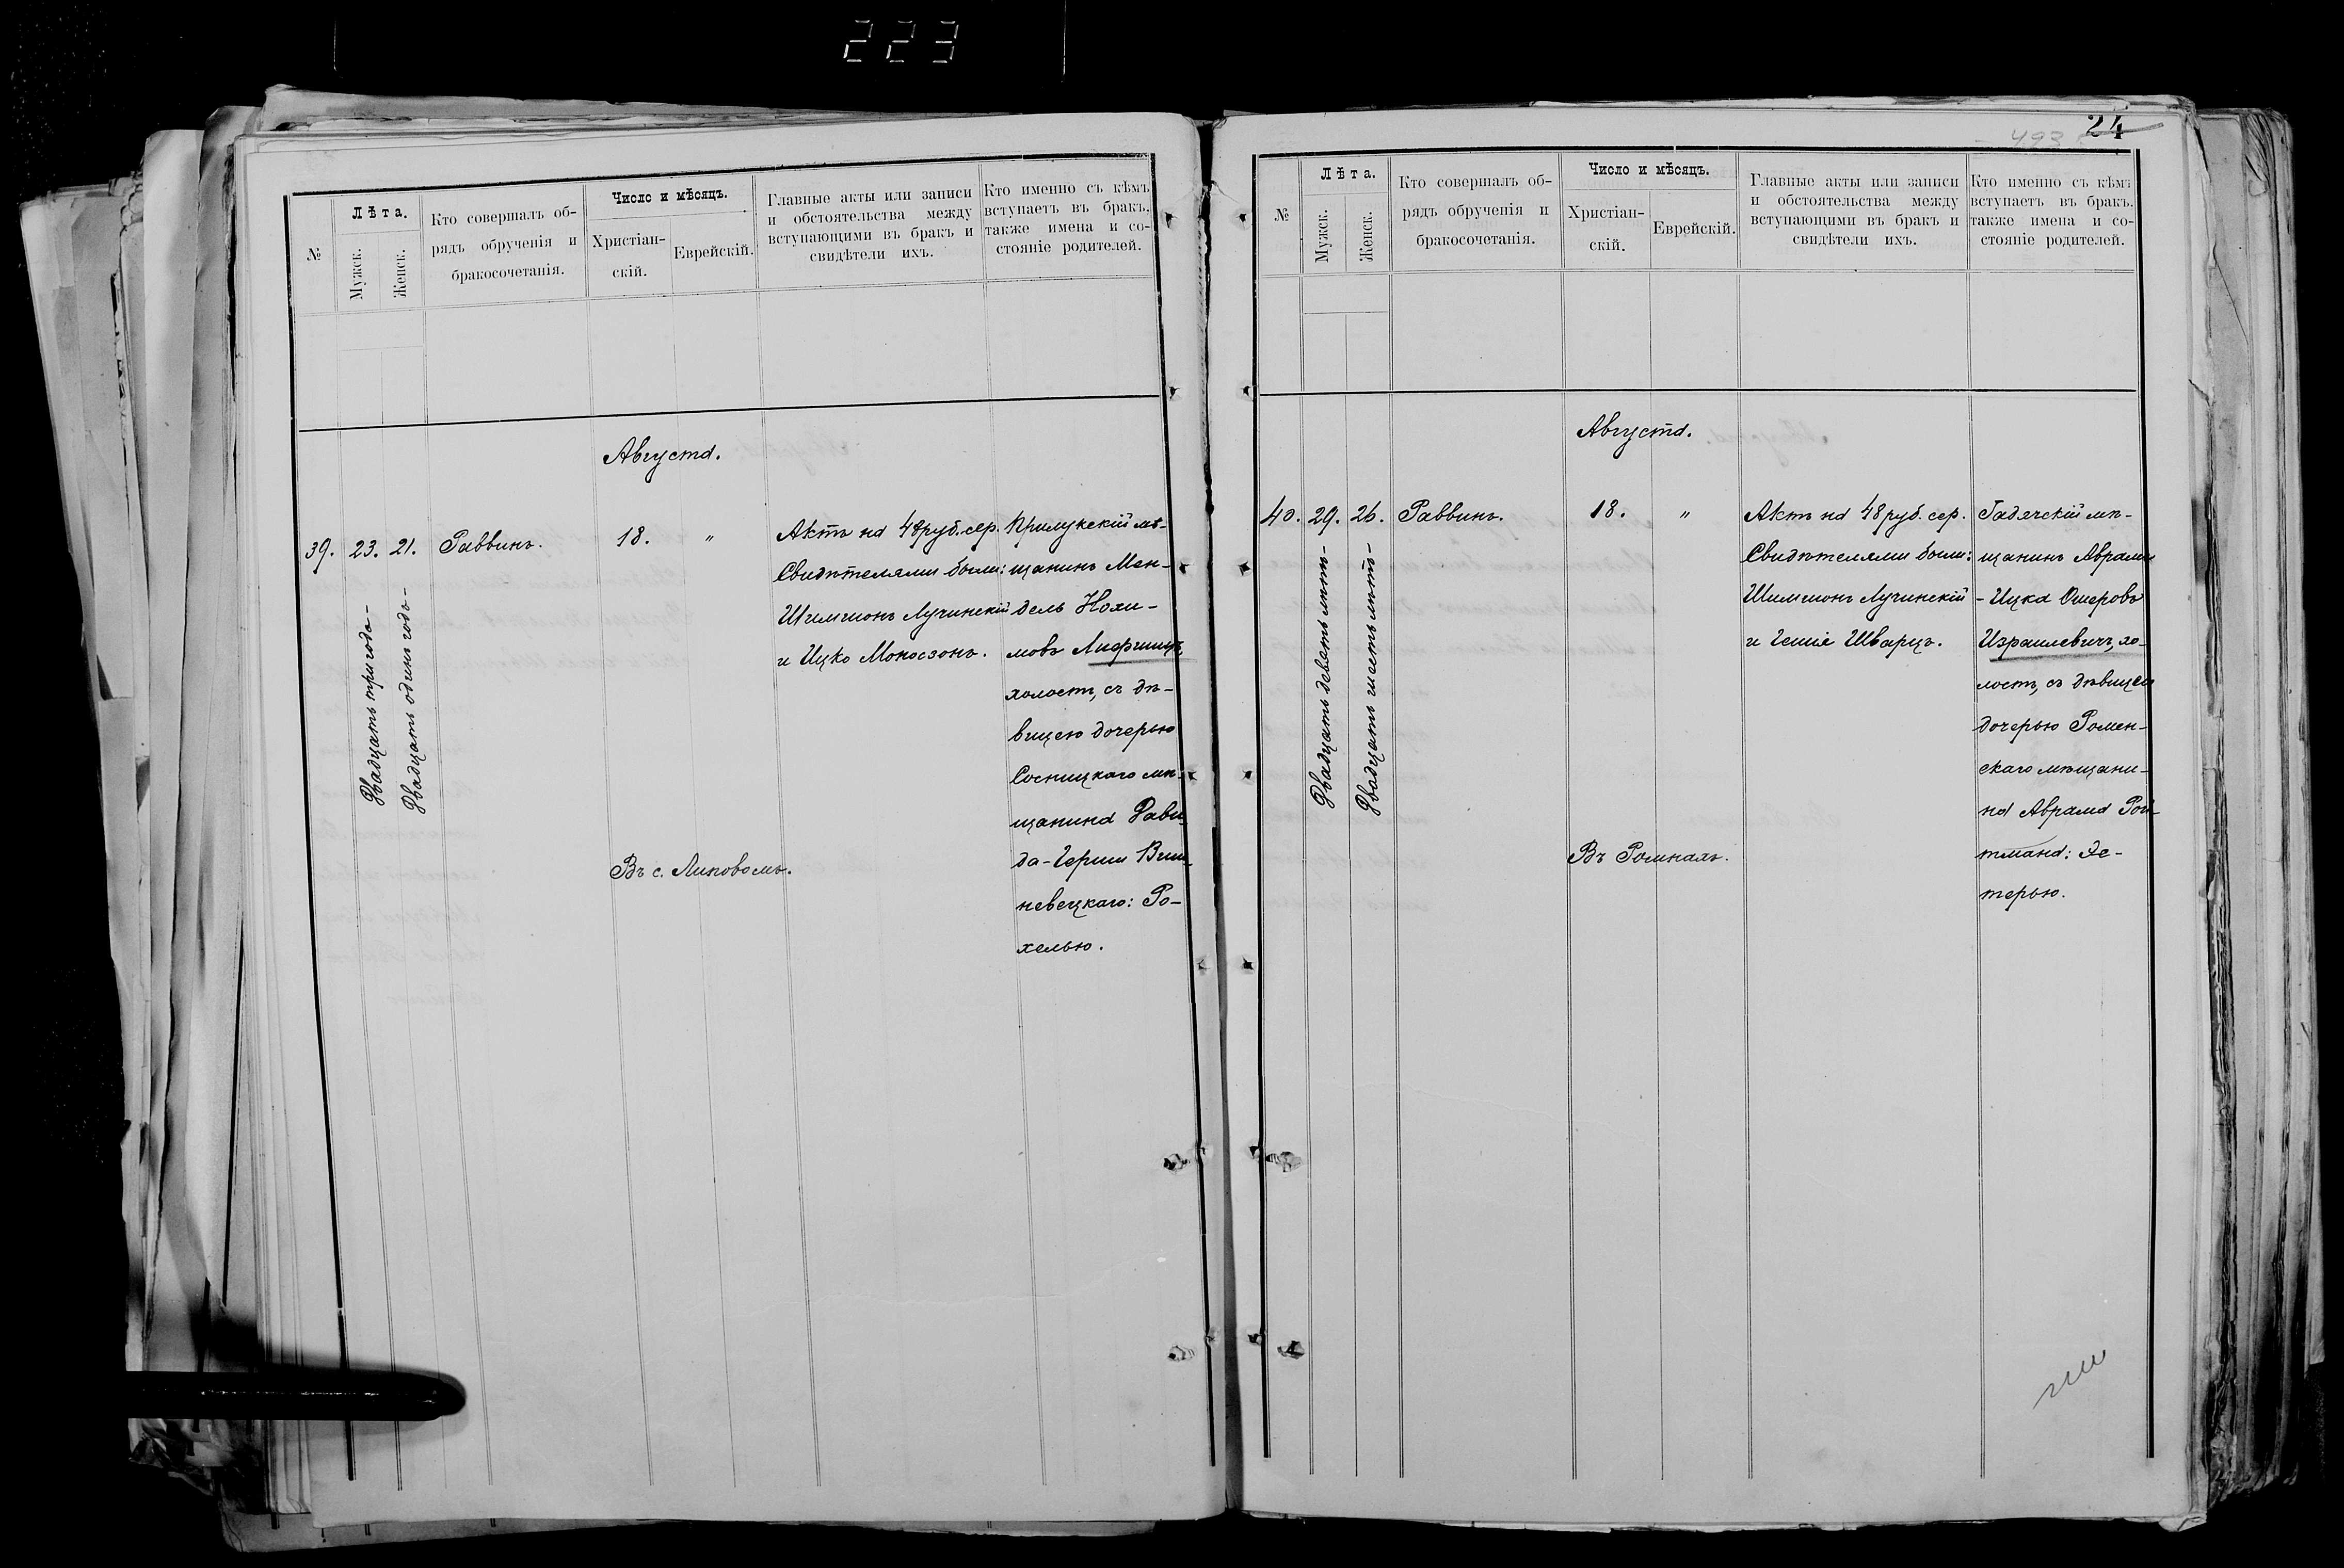 223
№
Лѣта.
Мужск.
Женск.
Кто совершалъ об-
рядъ обрученія и
бракосочетанія.
Число и мѣсяцъ.
Христіан-
скій.
Еврейскій.
Главные акты или записи
и обстоятельства между
вступающими въ бракъ и
свидѣтели ихъ.
Кто именно съ кѣмъ
вступаетъ въ бракъ,
также имена и со-
стояніе родителей.
Августа.
39. 23. 21. Раввинъ. 18. "
Двадцать три года-
Двадцать одинъ годъ-
Актъ на 48 руб. сер.
Свидѣтелями были:
Шимшонъ Лучинскій
и Ицко Моносзонъ.
Прилукскій мѣ-
щанинъ Мен-
дель Нохи-
мовъ Лифшицъ,
холостъ, съ дѣ-
вицею дочерью
Сосницкаго мѣ-
щанина Дави-
да-Герши Виш-
невецкаго: Ро-
хелью.
Въ с. Липовомъ.
24
493
№
Лѣта.
Мужск.
Женск.
Кто совершалъ об-
рядъ обрученія и
бракосочетанія.
Число и мѣсяцъ.
Христіан-
скій.
Еврейскій.
Главные акты или записи
и обстоятельства между
вступающими въ бракъ и
свидѣтели ихъ.
Кто именно съ кѣмъ
вступаетъ въ бракъ,
также имена и со-
стояніе родителей.
Августа.
40. 29. 26. Раввинъ. 18. "
Двадцать девять лѣтъ-
Двадцать шесть лѣтъ-
Актъ на 48 руб. сер.
Свидѣтелями были:
Шимшонъ Лучинскій
и Шварцъ.
Гадячскій мѣ-
щанинъ Аврамъ
-Ицка Ошеровъ
Израилевичъ, хо-
лостъ, съ дѣвицею
дочерью Ромен-
скаго мѣщани-
на Аврама Рой-
тмана: Эс-
терью.
Въ Ромнахъ.